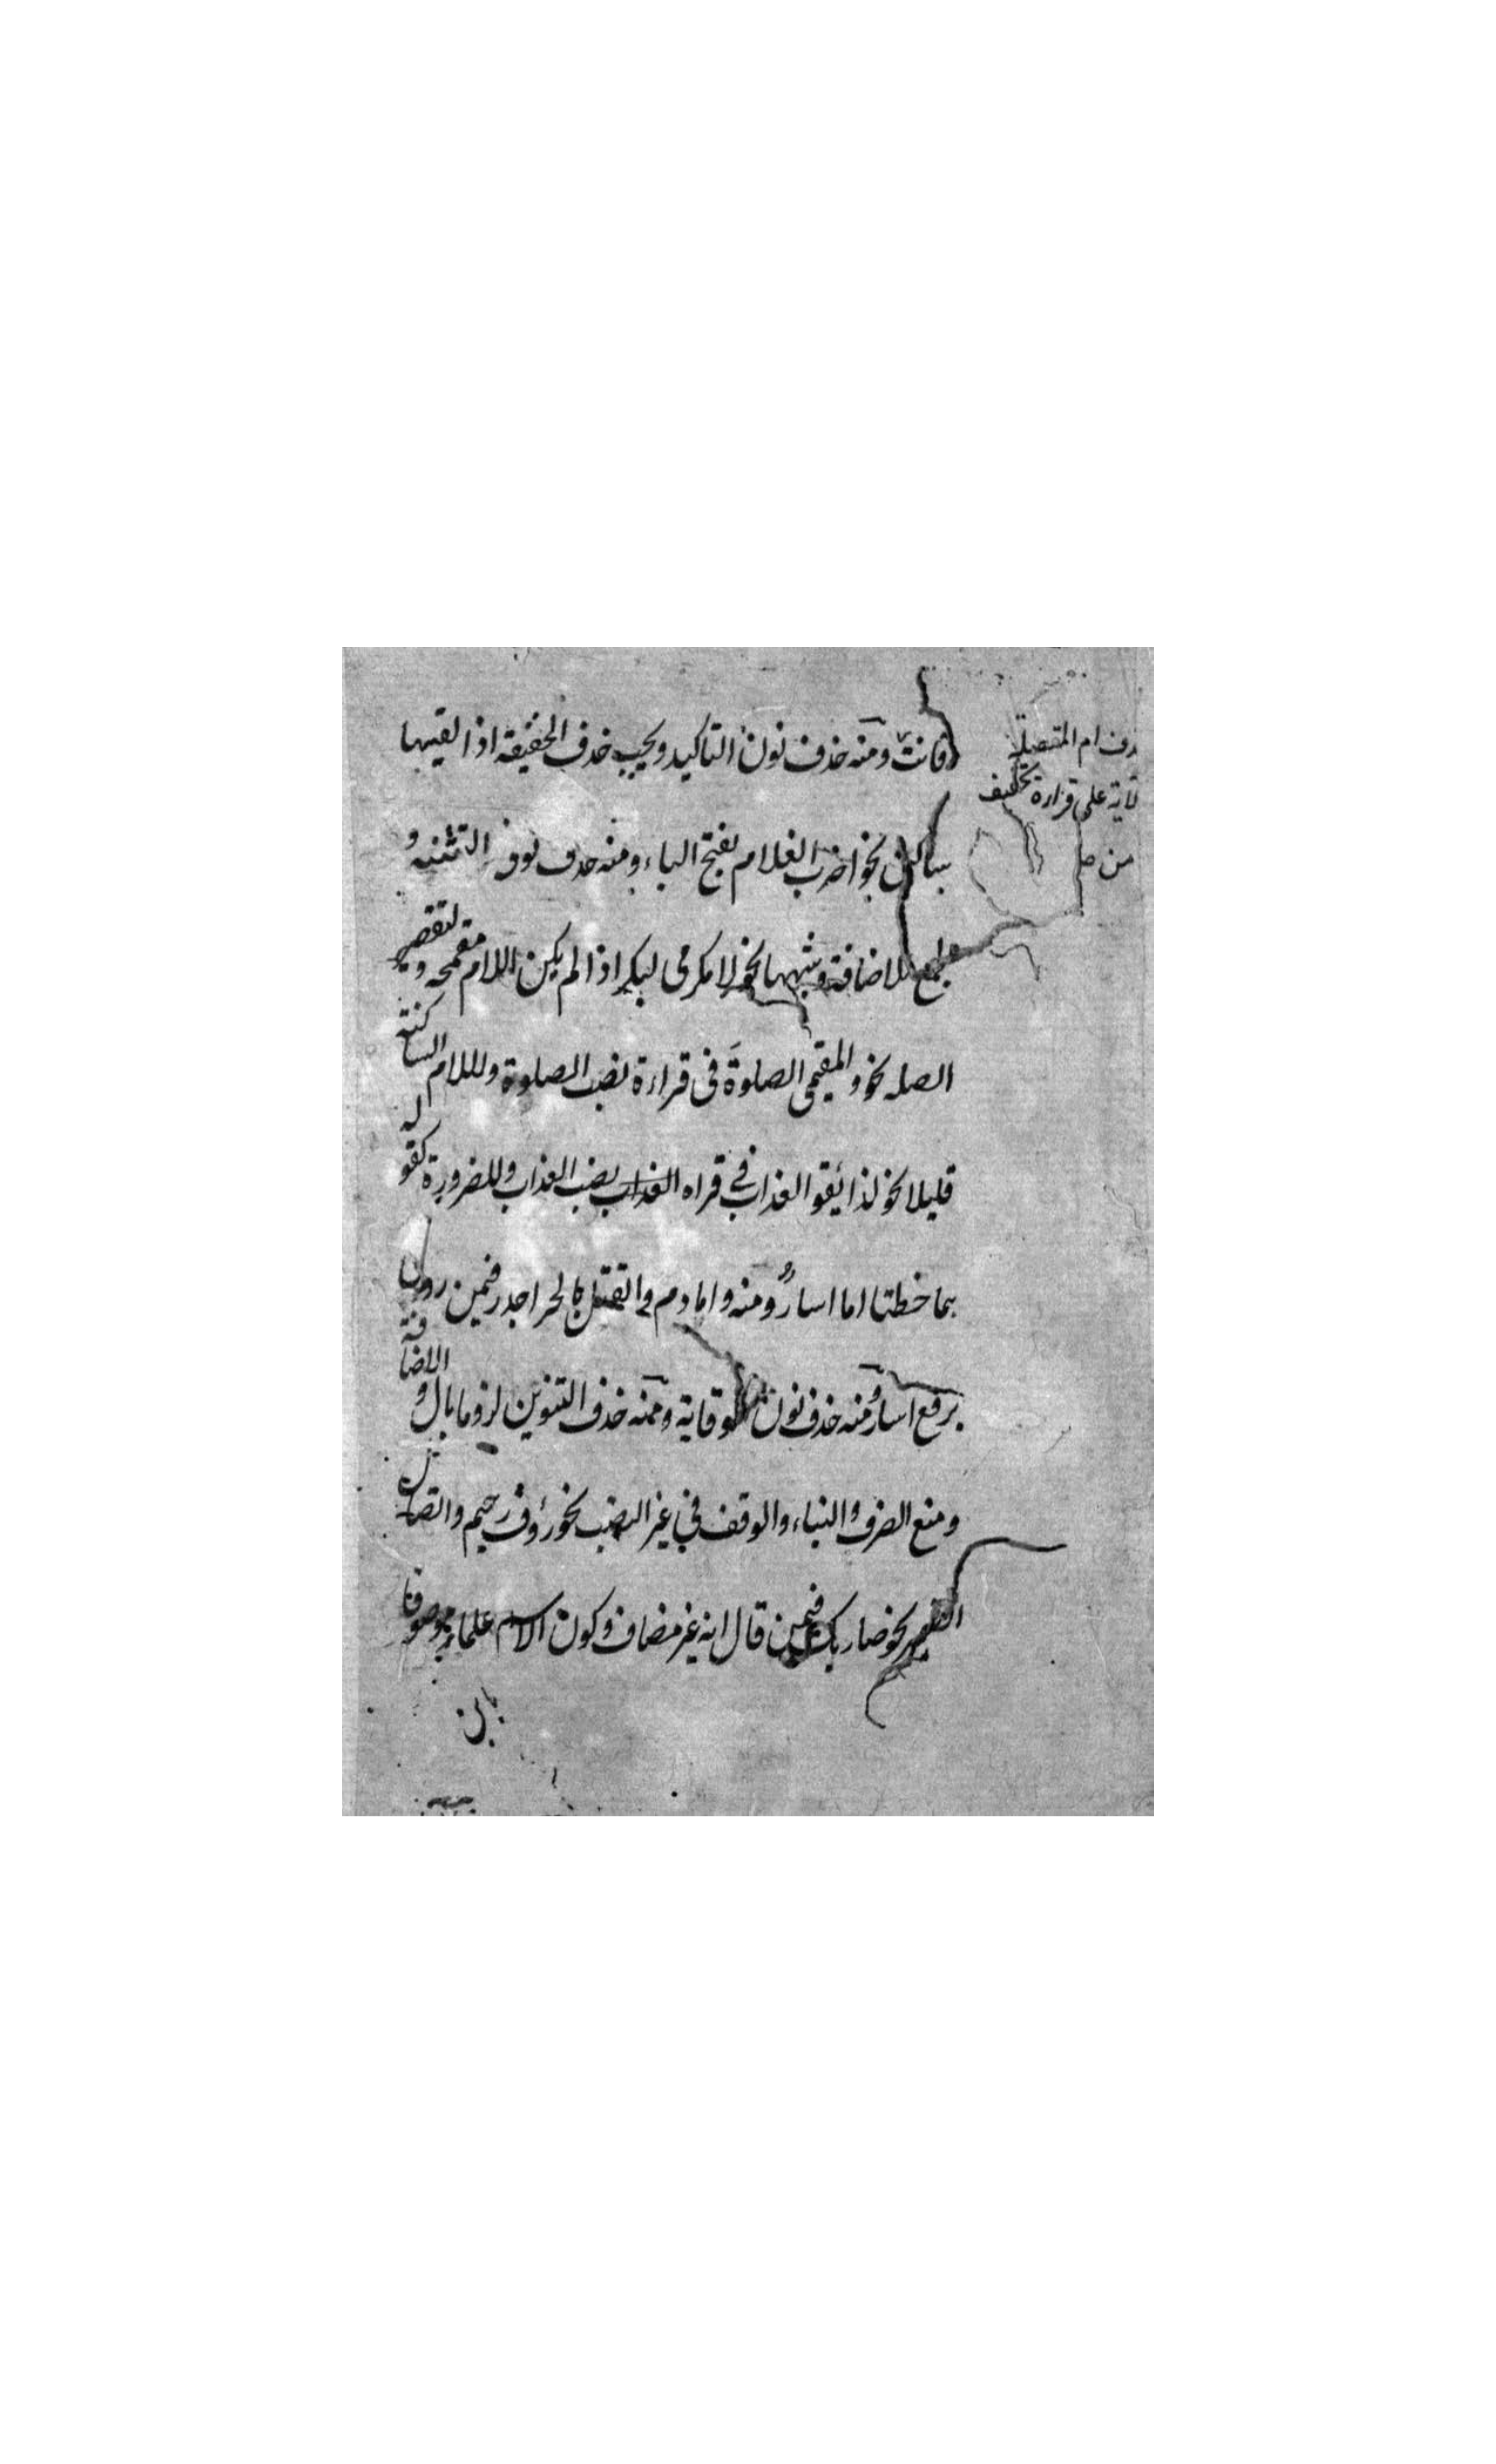 قانت ومنه حذف نون التاكيد ويجب حذف الخفيفة اذا لقيها
ساكن نحو اضرب الغلام بفتح الباء ومنه حذف نون التثنيه و
الجمع للاضافة وشبهها نحو لا مكرمى لبكر اذا لم يكن اللام مقحمه و لتقصير
الصله نحو والمقيمى الصلوةَ فى قراءة نصب الصلوة وللام الساكنة
قليلا نحو لذائقو العذاب فى قراه العذاب بنصب العذاب وللضرورة كقوله
بما خطتا اما اسارٌ ومنه واما دم والقتل بالحر اجدر فمين روى
برفع اسارٌ ومنه حذف نون الوقاية ومنه حذف التنوين لزوما بال و الاضافة
ومنع الصرف والبناء والوقف فى غير النصب نحو رؤف رحيم واتصال
الضمير نحو ضاربك فيمن قال انه غير مضاف وكون الاسم علما موصوفا
بابن
ام المتصلة
على قراءة تخفيف
من